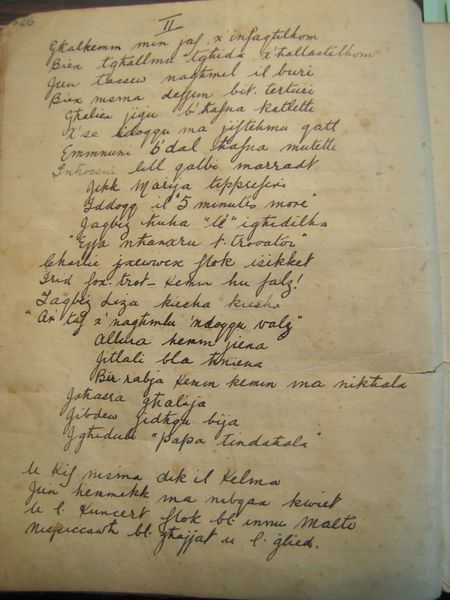 26
II
Għalkemm min jaf x'infaqtilkom
Biex tgħallmu tgħidu x'ħallastilkom
Jien tassew nagħmel il buri
Biex nisma deffun bit-terturi
Għaliex jigu b'ħafna kutletti
X'se idoqqu ma jiftehmu qatt
Emmnuni b'dal ħafna mutetti
Inħossni lill qalbi marradt
Jekk Marija tippreferi
Iddoqq il "5 minutes more"
Jaqbiż ħuha "lè" igħidilha
"Ejja nħanxru t-trovatur"
Charlie jxewwex flok isikket
Irid fox-trot - Kemm hu falz!
Taqbiż Liza kiesħa kiesħa
"Ax' taf x'nagħmlu 'ndoqqu valz"
Allura hemm jiena
Jitlali bla tniena
Bir-rabja kemm kemm ma nikħala
Jaħasra għalija
Jibdew jidħqu bija
Jgħiduli "Papa tindaħalx"
U kif nisma dik il kelma
Jien hemmekk ma nibqax kwiet
U l-kuncert flok bl-innu Malti
Nispiccawh bl-għajjat u l-glied.